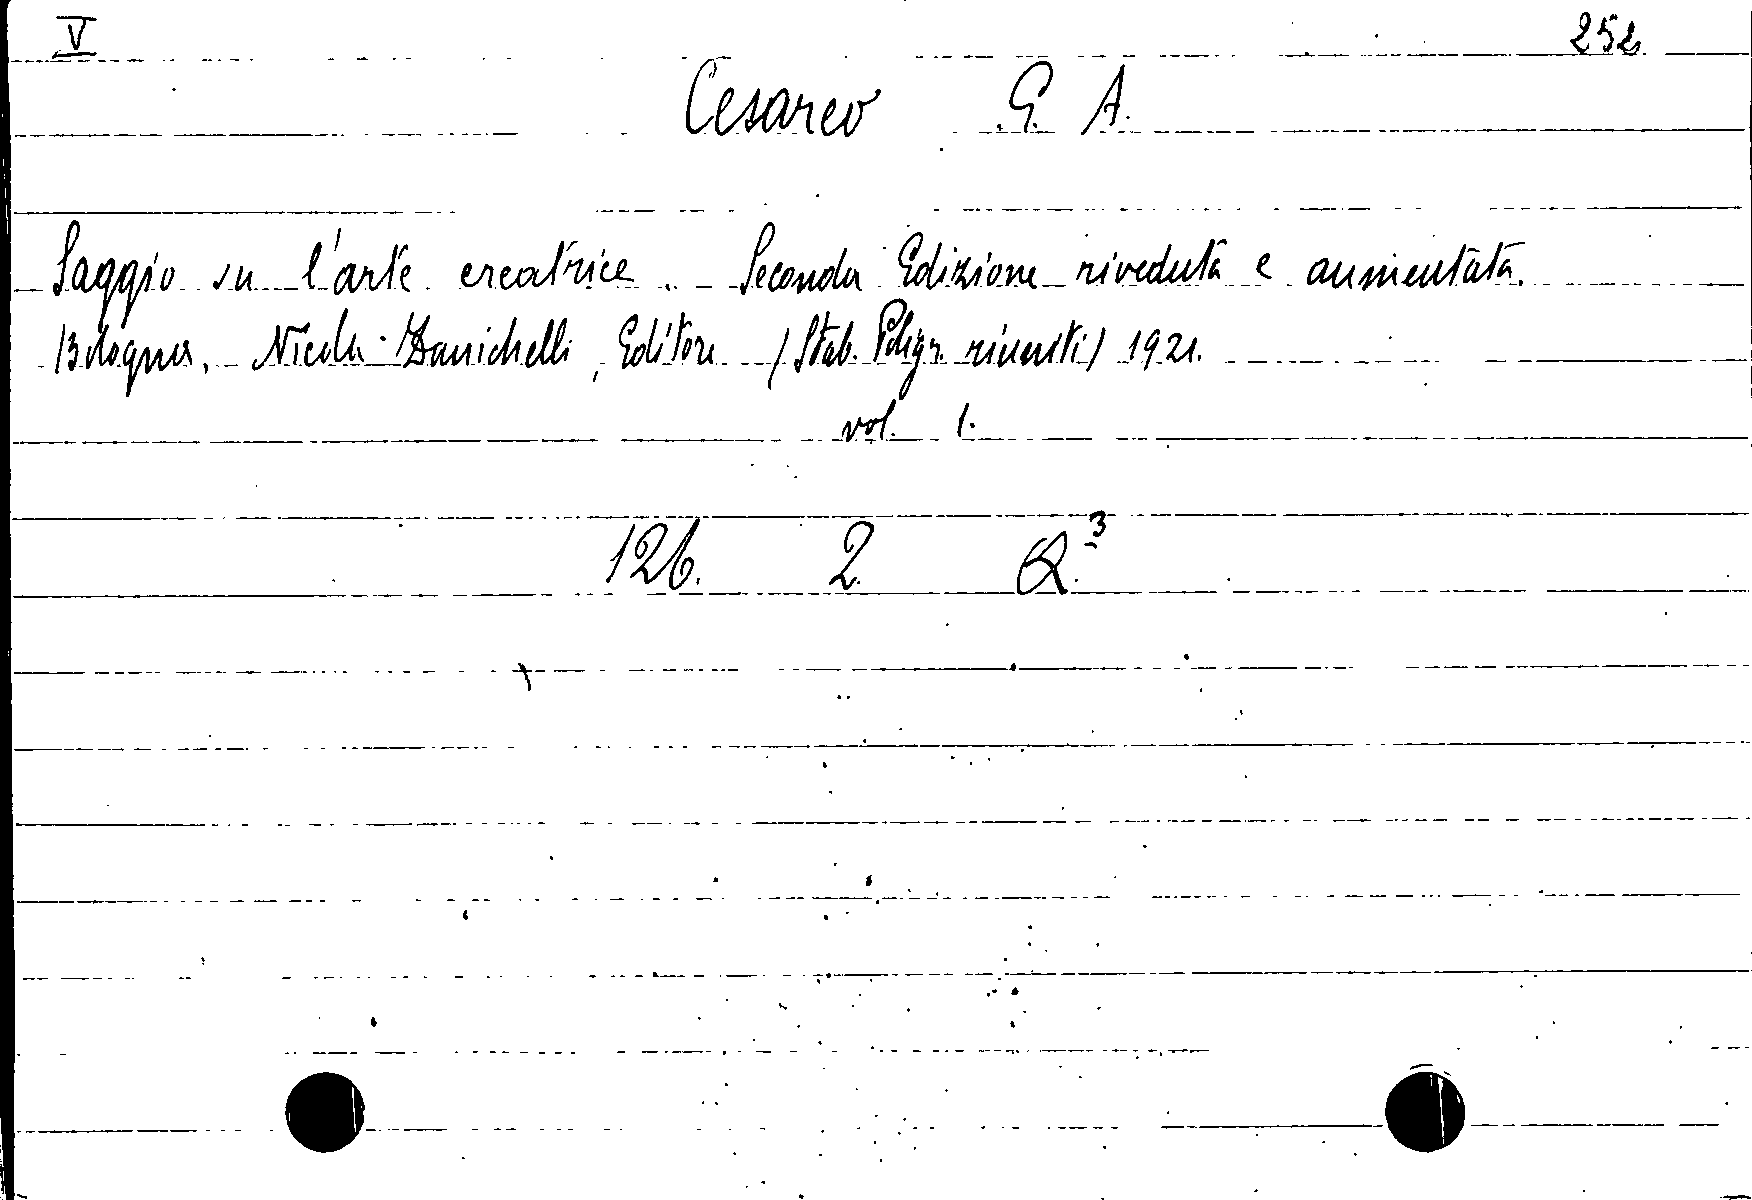 V 252
Cesareo G. A.
Saggio su l'arte creatrice. - Seconda Edizione riveduta e aumentata.
Bologna, Nicola Zanichelli, Editore (Stab. Poligr. riuniti) 1921.
vol. 1.
126. 2. Q.3